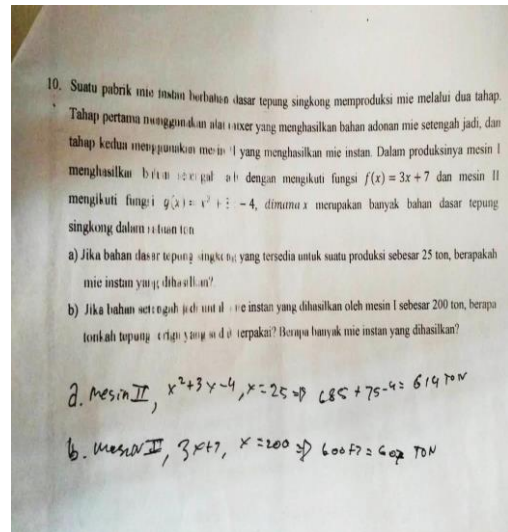 10. Suatu pabrik mie instan berbahan dasar tepung singkong memproduksi mie melalui dua tahap.
Tahap pertama menggunakan alat mixer yang menghasilkan bahan adonan mie setengah jadi, dan
tahap kedua menggunakan mesin II yang menghasilkan mie instan. Dalam produksinya mesin I
menghasilkan bahan setengah jadi dengan mengikuti fungsi f(x) = 3x + 7 dan mesin II
mengikuti fungsi g(x) = x² + - 4, dimana x merupakan banyak bahan dasar tepung
singkong dalam satuan ton
a) Jika bahan dasar tepung singkong yang tersedia untuk suatu produksi sebesar 25 ton, berapakah
mie instan yang dihasilkan?
b) Jika bahan setengah jadi untuk mie instan yang dihasilkan oleh mesin I sebesar 200 ton, berapa
tonkah tepung yang sudah terpakai? Berapa banyak mie instan yang dihasilkan?
a. Mesin II, x²+3x-4, x=25 => 685+75-4= 614 TON
b. mesin II, 3x+7, x=200 => 600+7= TON